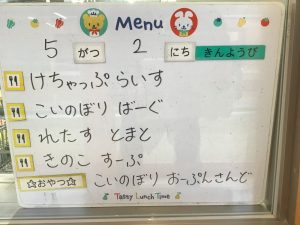 Menu
5 がつ 2 にち きんようび
けちゃっぷらいす
こいのぼり ばーぐ
れたす とまと
きのこ すーぷ
☆おやつ☆ こいのぼり おーぷんさんど
Tasty Lunch Time